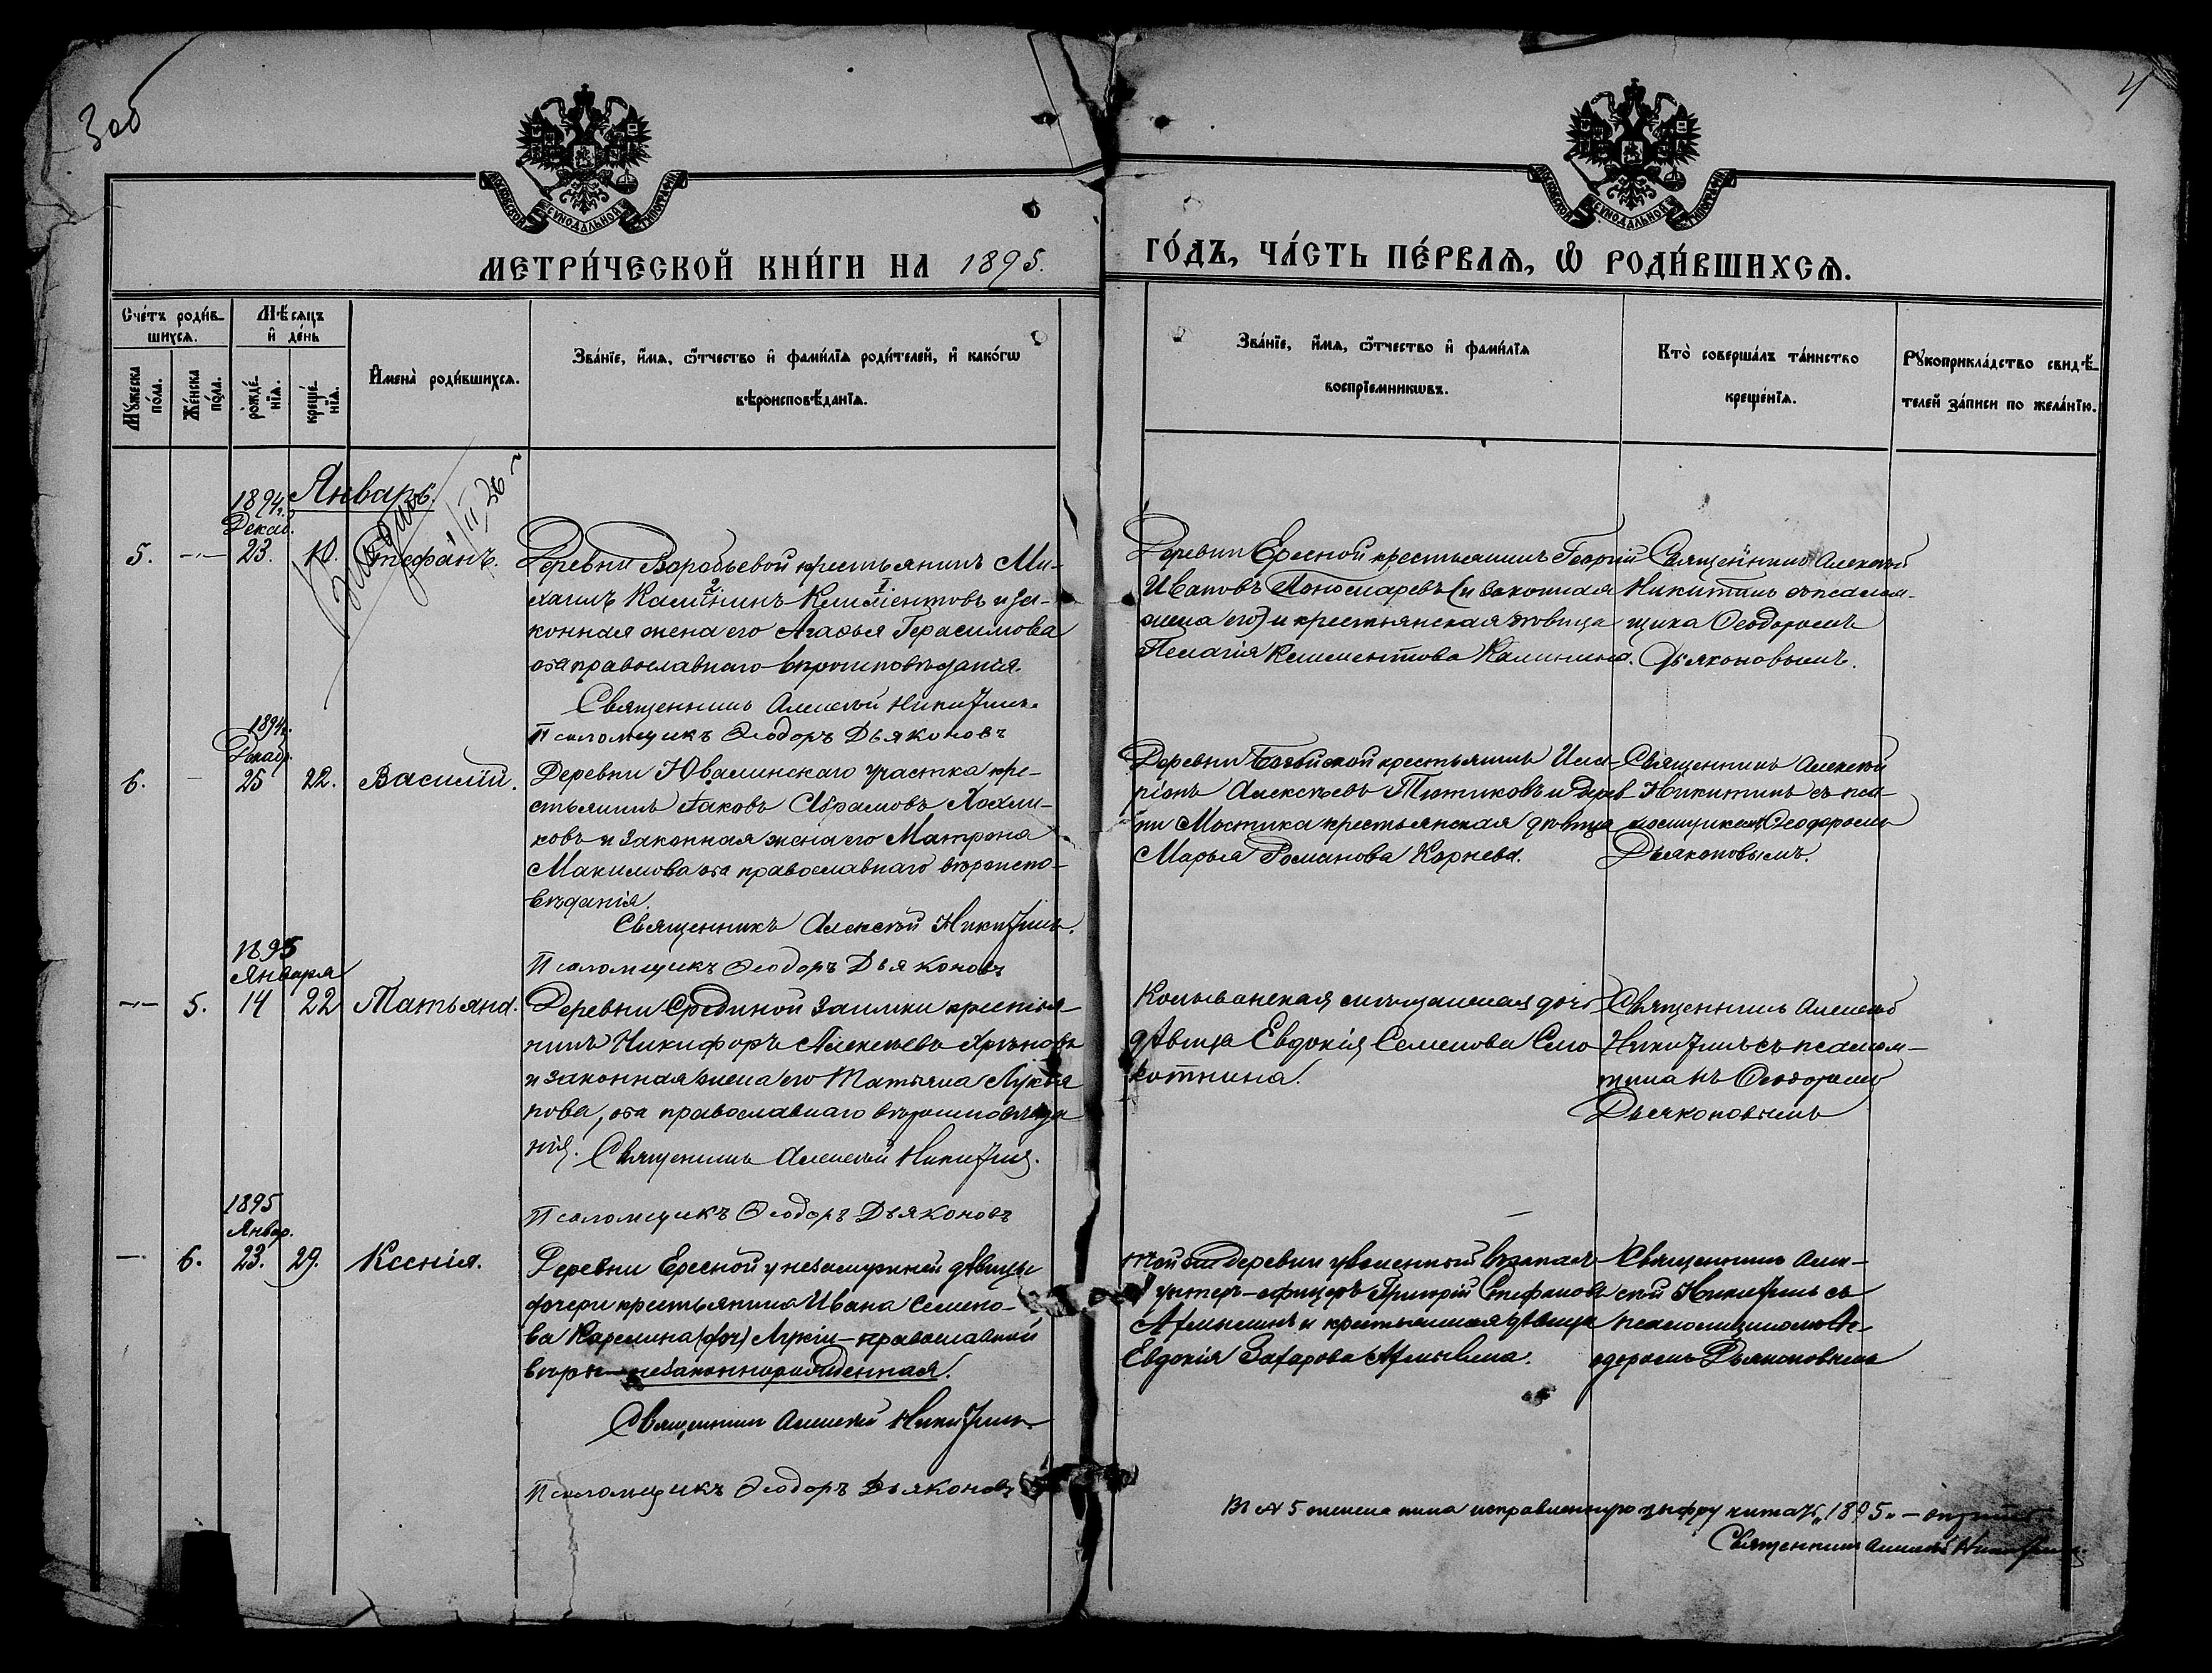 3 об
4
МОСКОВСКОЙ СѴНОДАЛЬНОЙ ТИПОГРАФІИ
МОСКОВСКОЙ СѴНОДАЛЬНОЙ ТИПОГРАФІИ
МЕТРИ́ЧЕСКОЙ КНИ́ГИ НА 1895.
ГО́ДЪ, ЧА́СТЬ ПЕ́РВАѦ, Ѡ҆ РОДИ́ВШИХСѦ.
Сче́тъ роди́в-
шихсѧ.
Мѣ́сѧцъ
и҆ де́нь
Мꙋ́жеска
по́ла.
Же́нска
по́ла.
рожде́-
нїѧ.
креще́-
нїѧ.
И҆мена̀ роди́вшихсѧ.
Зва́нїе, и҆́мѧ, ѻ҆́тчество и҆ фами́лїѧ роди́телей, и҆ како́гѡ
вѣроисповѣ́данїѧ.
Зва́нїе, и҆́мѧ, ѻ҆́тчество и҆ фами́лїѧ
воспрїемникѡвъ.
Кто̀ соверша́лъ та́инство
креще́нїѧ.
Рꙋкоприкла́дство свидѣ́-
телей за́писи по жела́нїю.
Январь.
1894г.
Декаб.
5. -"- 23. 10. Стефанъ.
Деревни Воробьевой крестьянинъ Ми-
хаилъ Калининъ Климентовъ и за-
конная жена его Агафья Герасимова
оба православнаго вѣроисповѣданія.
Священникъ Алексѣй Никитинъ.
Псаломщикъ Ѳеодоръ Дьяконовъ
Деревни Ересной крестьянинъ Георгій
Ивановъ Пономаревъ (и законная
жена его) и крестьянская дѣвица
Пелагія Климентова Калинина.
Священникъ Алексѣй
Никитинъ съ псалом-
щика Ѳеодоромъ
Дьяконовымъ.
1894г.
Декабр.
6. - 25 22. Василій.
Деревни Ювалинскаго участка кре-
стьянинъ Іаковъ Абрамовъ
ковъ и законная жена его Матрона
Макимова оба православнаго вѣроиспо-
вѣданія.
Священникъ Алексѣй Никитинъ.
Псаломщикъ Ѳеодоръ Дьяконовъ
Деревни крестьянинъ Ила-
ріонъ Алексѣевъ Титиковъ и дерев-
ни Мостика крестьянская дѣвица
Марья Романова Корнева.
Священникъ Алексѣй
Никитинъ съ пса-
ломщикомъ Ѳеодоромъ
Дьяконовымъ.
1895
Января
-"- 5. 14 22 Татьяна.
Деревни Срединой Заимки крестья-
нинъ Никифоръ Алексѣевъ
и законная жена его Татьяна Лукья
нова, оба православнаго вѣроисповѣда
нія. Священникъ Алексѣй Никитинъ.
Псаломщикъ Ѳеодоръ Дьяконовъ
Колыванская мѣщанская дочь
дѣвица Евдокія Семенова Смо
котнина.
Священникъ Алексѣй
Никитинъ съ псалом-
Ѳеодоромъ
Дьяконовымъ
1895
Январ.
- 6. 23. 29. Ксенія.
Деревни Ересной у незамужней дѣвицы
дочери крестьянина Ивана Семено-
ва Карелина (доч) Лукіи - православной
вѣры - незаконнорожденная.
Священникъ Алексѣй Никитинъ.
Псаломщикъ Ѳеодоръ Дьяконовъ
той же деревни уволенный въ запасъ
унтеръ-офицеръ Григорій Стефановъ
и крестьянская дѣвица
Евдокія Захарова
Священникъ Але-
ксѣй Никитинъ съ
псаломщикомъ Ѳе-
одоромъ Дьяконовымъ
Въ № 5 исправленную цыфру читать „1895"
Священникъ Алексѣй Никитинъ.